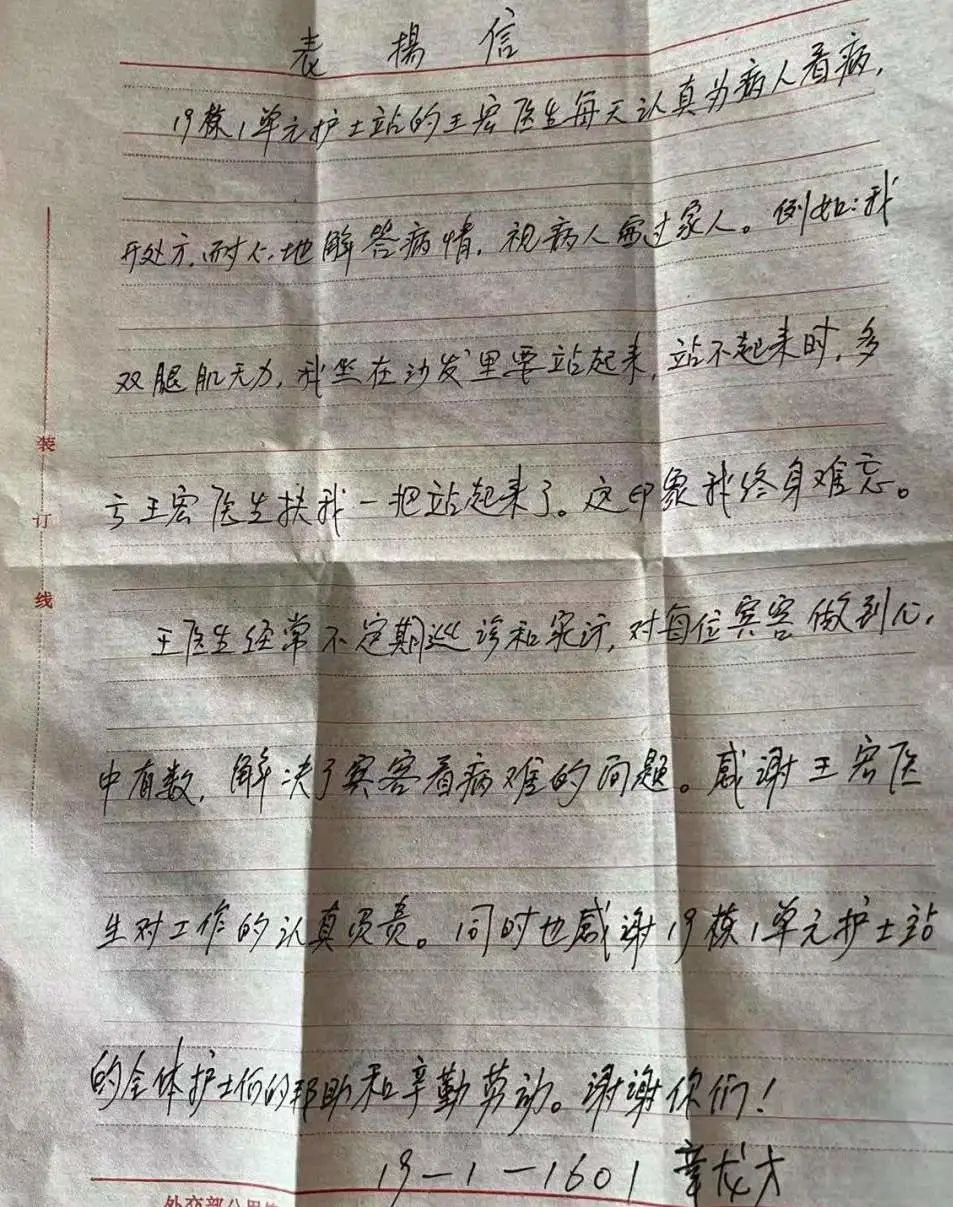 表 揚 信
19栋1单元护士站的王宏医生每天认真为病人看病，
开处方，耐心地解答病情，视病人需过家人。例如：我
双腿肌无力，我坐在沙发里要站起来，站不起来时，多
亏王宏医生扶我一把站起来了。这印象我终身难忘。
王医生经常不定期巡诊和家访，对每位宾客做到心，
中有数，解决了宾客看病难的问题。感谢王宏医
生对工作的认真负责。同时也感谢19栋1单元护士站
的全体护士们的帮助和辛勤劳动。谢谢你们！
19-1-1601 章
装
订
线
外交部公用